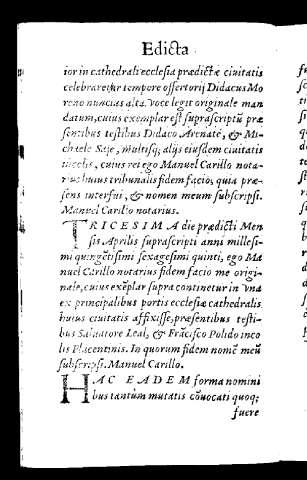 Edicta
ior in cathedrali ecclesia prædictæ ciuitatis
celebraretur tempore offertorij Didacus Mo
reno nuncius alta voce legit originale man
datum, cuius exemplar est suprascriptũ præ
sentibus testibus Didaco Arnate, & Mi-
chaele Saje, multisq; alijs eiusdem ciuitatis
incolis, cuius rei ego Manuel Carillo nota-
rius huius tribunalis fidem facio, quia præ-
sens interfui, & nomen meum subscripsi.
Manuel Carillo notarius.
TRICESIMA die prædicti Men
sis Aprilis suprascripti anni millesi-
mi quingẽtisimi sexagesimi quinti, ego Ma
nuel Carillo notarius fidem facio me origi-
nale, cuius exẽplar supra continetur in vna
ex principalibus portis ecclesiæ cathedralis
huius ciuitatis affixisse, præsentibus testi-
bus Saluatore Leal, & Frãcisco Polido inco
lis Placentinis. In quorum fidem nomẽ meũ
subscripsi. Manuel Carillo.
HAC EADEM forma nomini
bus tantùm mutatis cõuocati quoq;
fuere